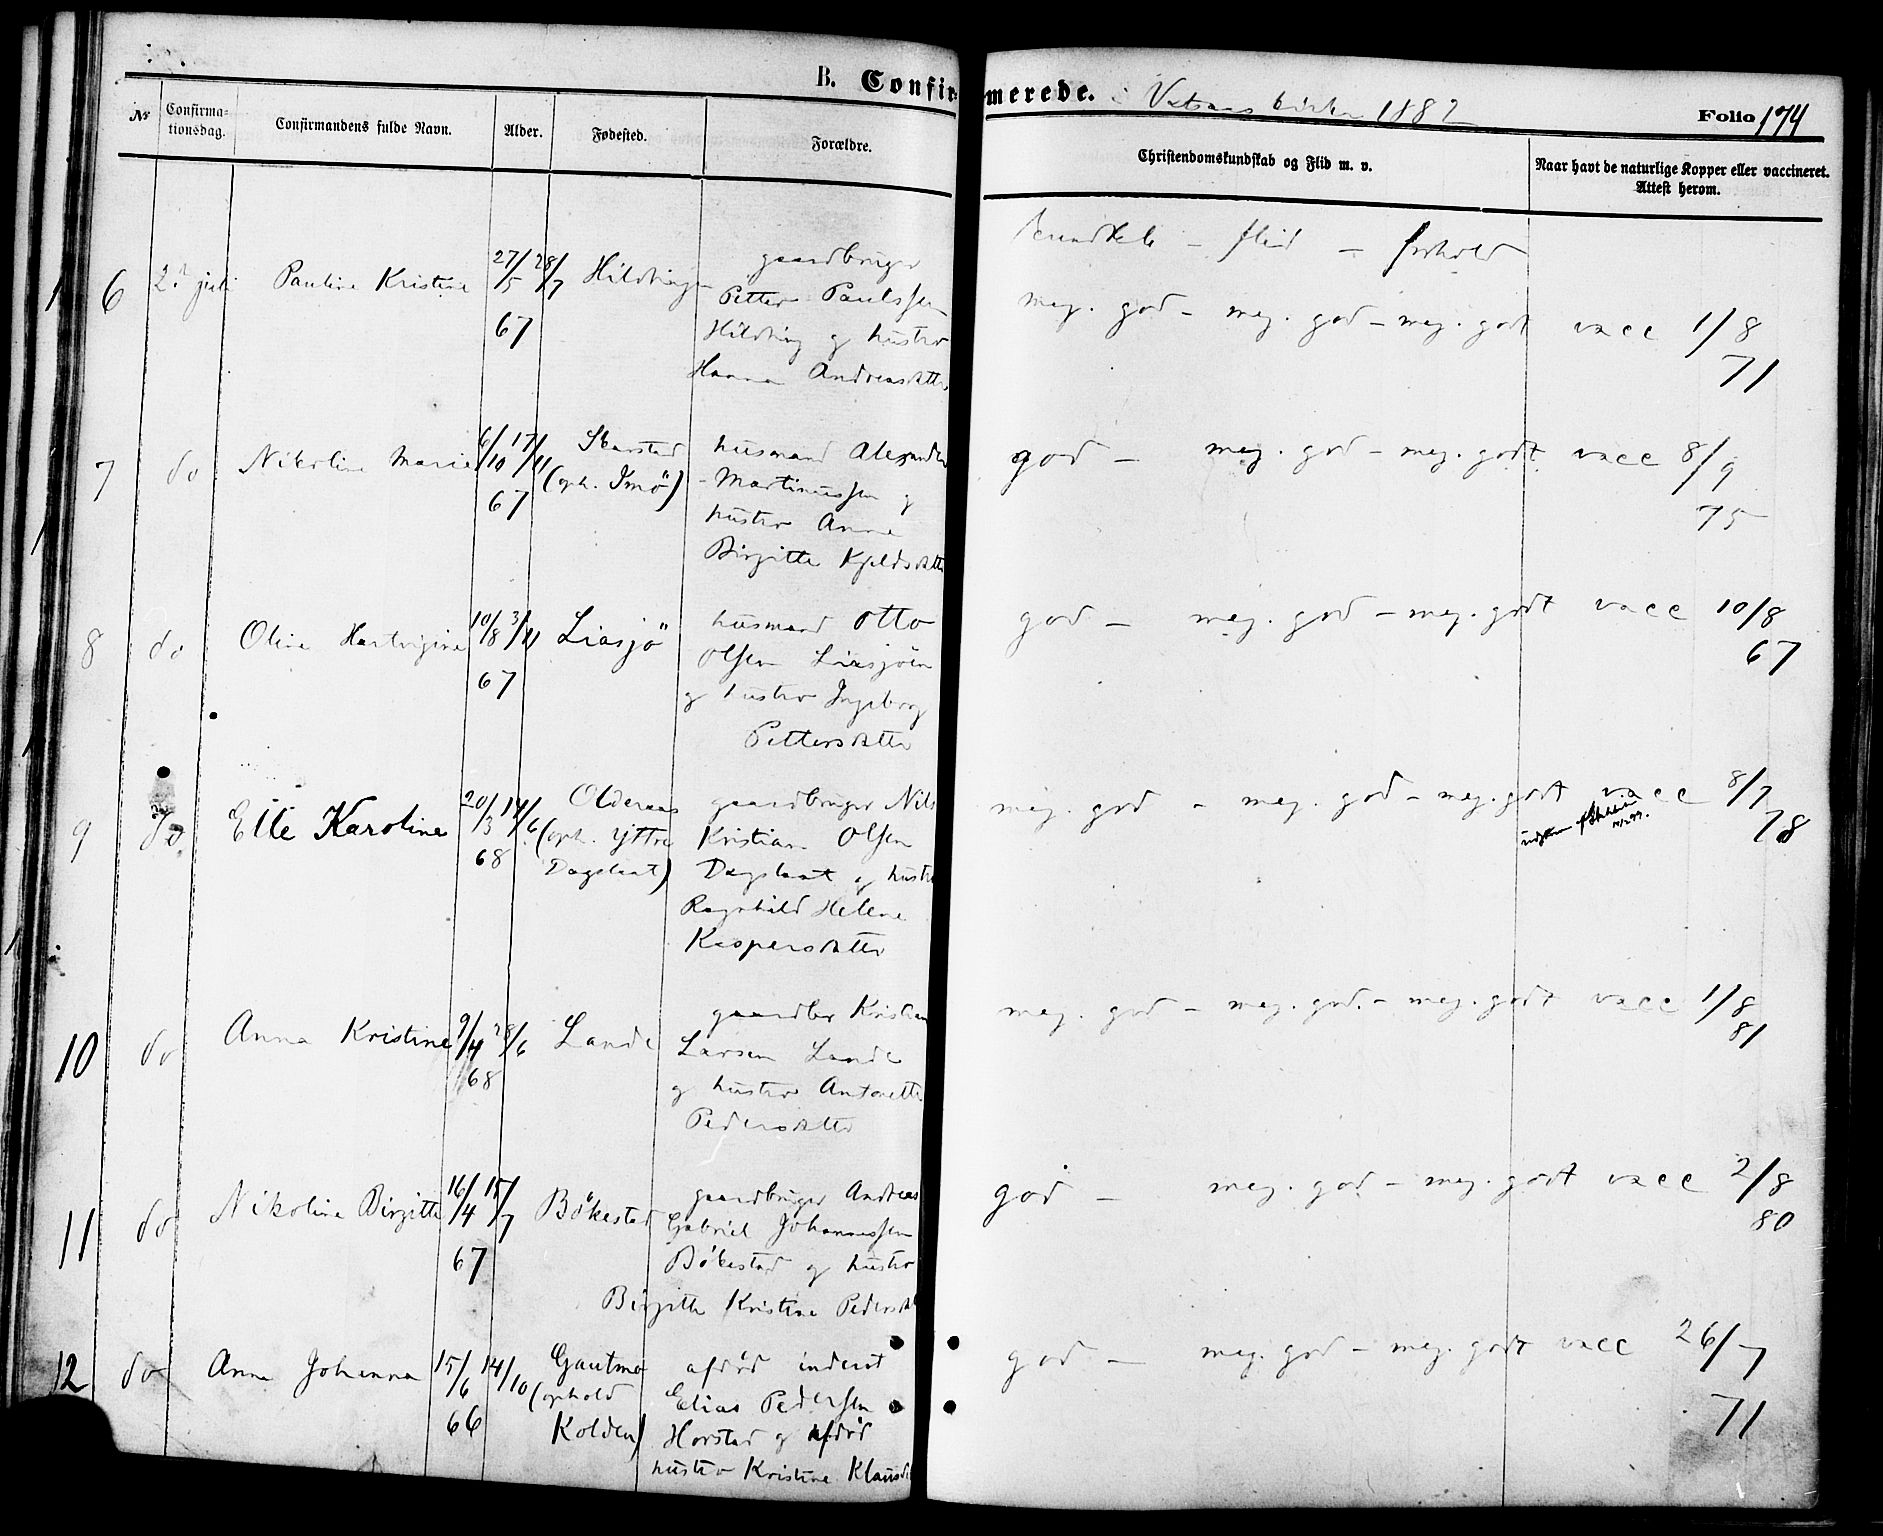 B. Confirmerede. 1882
Folio 174
No Confirmationsdag. Confirmandens fulde Navn. Alder. Fødested. Forældre. Christendomskundskab og Flid m. v. Naar havt de naturlige Kopper eller vaccineret. Attest herom.
kundskab – flid – forhold
6 2 juli Pauline Kristine 27/5 28/7 67 gaardbruger
Petter Paulssen
og hustro
Hanna Andreasdatter
meg. god – meg. god – meg. godt vacc 1/8 71
7 do Nikoline Marie 6/10 17/11 67 Skarstad (oph. Imö) husmand Alexander
Martinussen og
hustro Anna
Birgitte Kjeldsdatter
god – meg. god – meg. godt vacc 8/9 75
8 do Oline Hartvigine 10/8 3/11 67 Liasjö husmand Otto
Olsen Liasjöen
og hustro Ingeborg
Pettersdatter
god – meg. god – meg. godt vacc 10/8 67
9 do Elle Karoline 20/3 14/6 68 Olderaas (oph. Yttre Dagslaat) gaardbruger Nils
Kristian Olsen
Dagslaat og hustro
Ragnhild Helene
Kaspersdatter
meg. god – meg. god – meg. godt vacc 8/7 78
10 do Anna Kristine 9/4 28/6 68 Lande gaardbr Kristian
Larsen Lande
og hustro Antonette
Pedersdatter
meg. god – meg. god. – meg. godt vacc 1/8 81
11 do Nikoline Birgitte 16/4 15/7 67 Bökestad gaardbruger Andreas
Gabriel Johannessen
Bökestad og hustro
Birgitte Kristine Pedersdat
god – meg. god – meg. godt vacc 2/8 80
12 do Anna Johanna 15/6 14/10 66 (ophold Kolden) afdød inderst
Elias Pedersen
Horstad og afdød
hustro Kristine Klausd
god – meg. god – meg. godt vacc 26/7 71